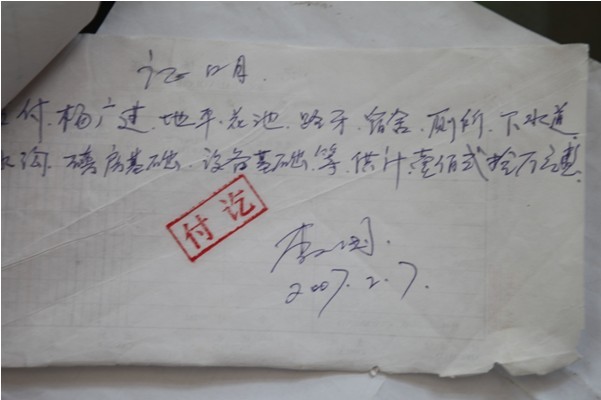 证明
付杨广建.地平.花池.路牙.宿舍.厕所.下水道
水沟.磺房基础.设备基础.等.供计.壹佰式拾万元整.
付讫
2007.2.7.